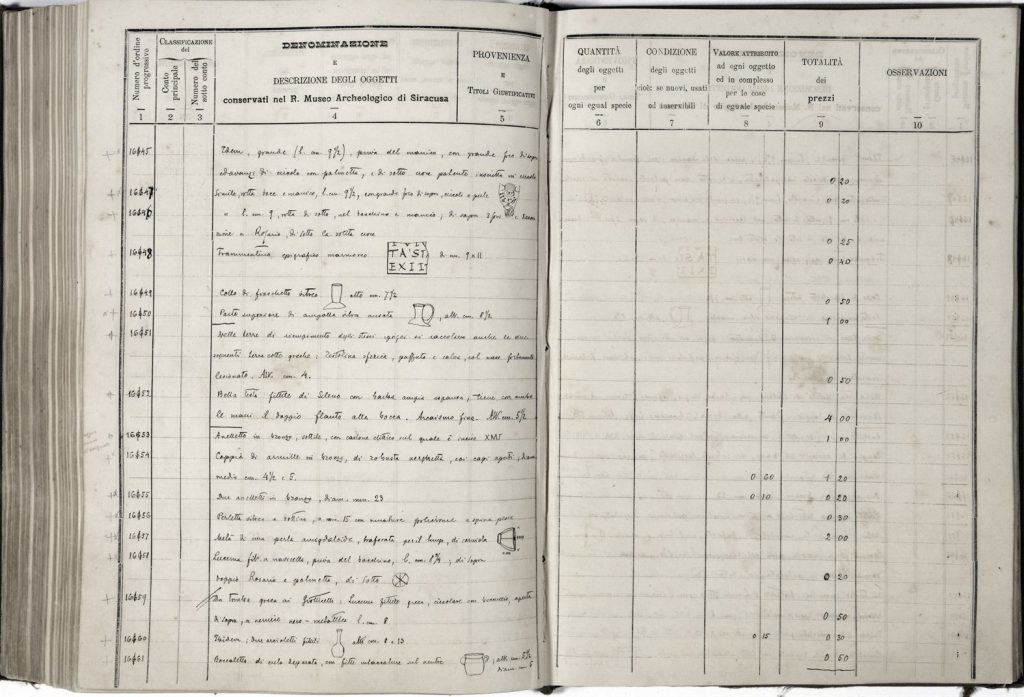 Numero d'ordine progressivo
CLASSIFICAZIONE del
Conto principale
Numero del sotto conto
DENOMINAZIONE
E
DESCRIZIONE DEGLI OGGETTI
conservati nel R. Museo Archeologico di Siracusa
PROVENIENZA
E
TITOLI GIUSTIFICATIVI
1 2 3 4 5
QUANTITÀ
degli oggetti
per
ogni egual specie
6
CONDIZIONE
degli oggetti
cioè: se nuovi, usati
od inservibili
7
VALORE ATTRIBUITO
ad ogni oggetto
ed in complesso
per le cose
di eguale specie
8
TOTALITÀ
dei
prezzi
9
OSSERVAZIONI
10
Idem, grande (l. cm. 9 1/2), priva del manico, con grande foro di sopra
di circolo con palmetta, e di sotto croce patente in circolo
0 20
Simile, rotta becco e manico, l. cm. 9 1/2, con grande foro di sopra, circolo e
0 20
" l. cm. 9, rotta di sotto, nel becchino e manico; di sopra 3 fori e
a Rosario, di sotto la solita croce
0 25
16448 Frammentino epigrafico marmoreo
TA'ST
EXII
di cm. 9 x 11
0 40
16449 Collo di fiaschetto vitreo alto cm. 7 1/2
0 50
16450 Parte superiore di ampolla vitrea ansata, alt. cm. 8 1/2
1 00
16451 Nelle terre di riempimento degli stessi ipogei si raccolsero anche le due
seguenti terre cotte greche: Testolina sferica, paffuta e calva, col naso fortemente
lesionato. Alt. cm. 4.
0 50
16452 Bella testa fittile di Sileno con barba ampia espansa; tiene con ambo
le mani il doppio flauto alla bocca. Arcaismo fine. Alt. cm. 5 1/2
4 00
16453 Anelletto in bronzo, sottile, con castone elittico sul quale è inciso XMT
1 00
16454 Coppia di armille in bronzo, di robusta verghetta, coi capi aperti, diam.
medio cm. 4 1/2 e 5.
0 60 1 20
16455 Due anelletti in bronzo, diam. mm. 23
0 10 0 20
16456 Perletta vitrea a mm. 15 con
0 30
16457 Metà di una perla amigdaloide, traforata, per il lungo, di corniola
2 00
16458 Lucerna fitt. a navicella, priva del becchino, l. cm. 8 1/2; di sopra
doppio Rosario e palmetta, di sotto
0 20
16459 Da tomba greca ai Grotticelli: Lucerna fittile greca, circolare con beccuccio, aperta
di sopra, a vernice nero-metallica l. cm. 8
0 50
16460 Ibidem; due fittili alti cm. 8 e 13
0 15 0 30
16461 Boccaletto di creta depurata, con fitte sul ventre, alt. cm. 5 1/2
diam. cm. 5
0 50